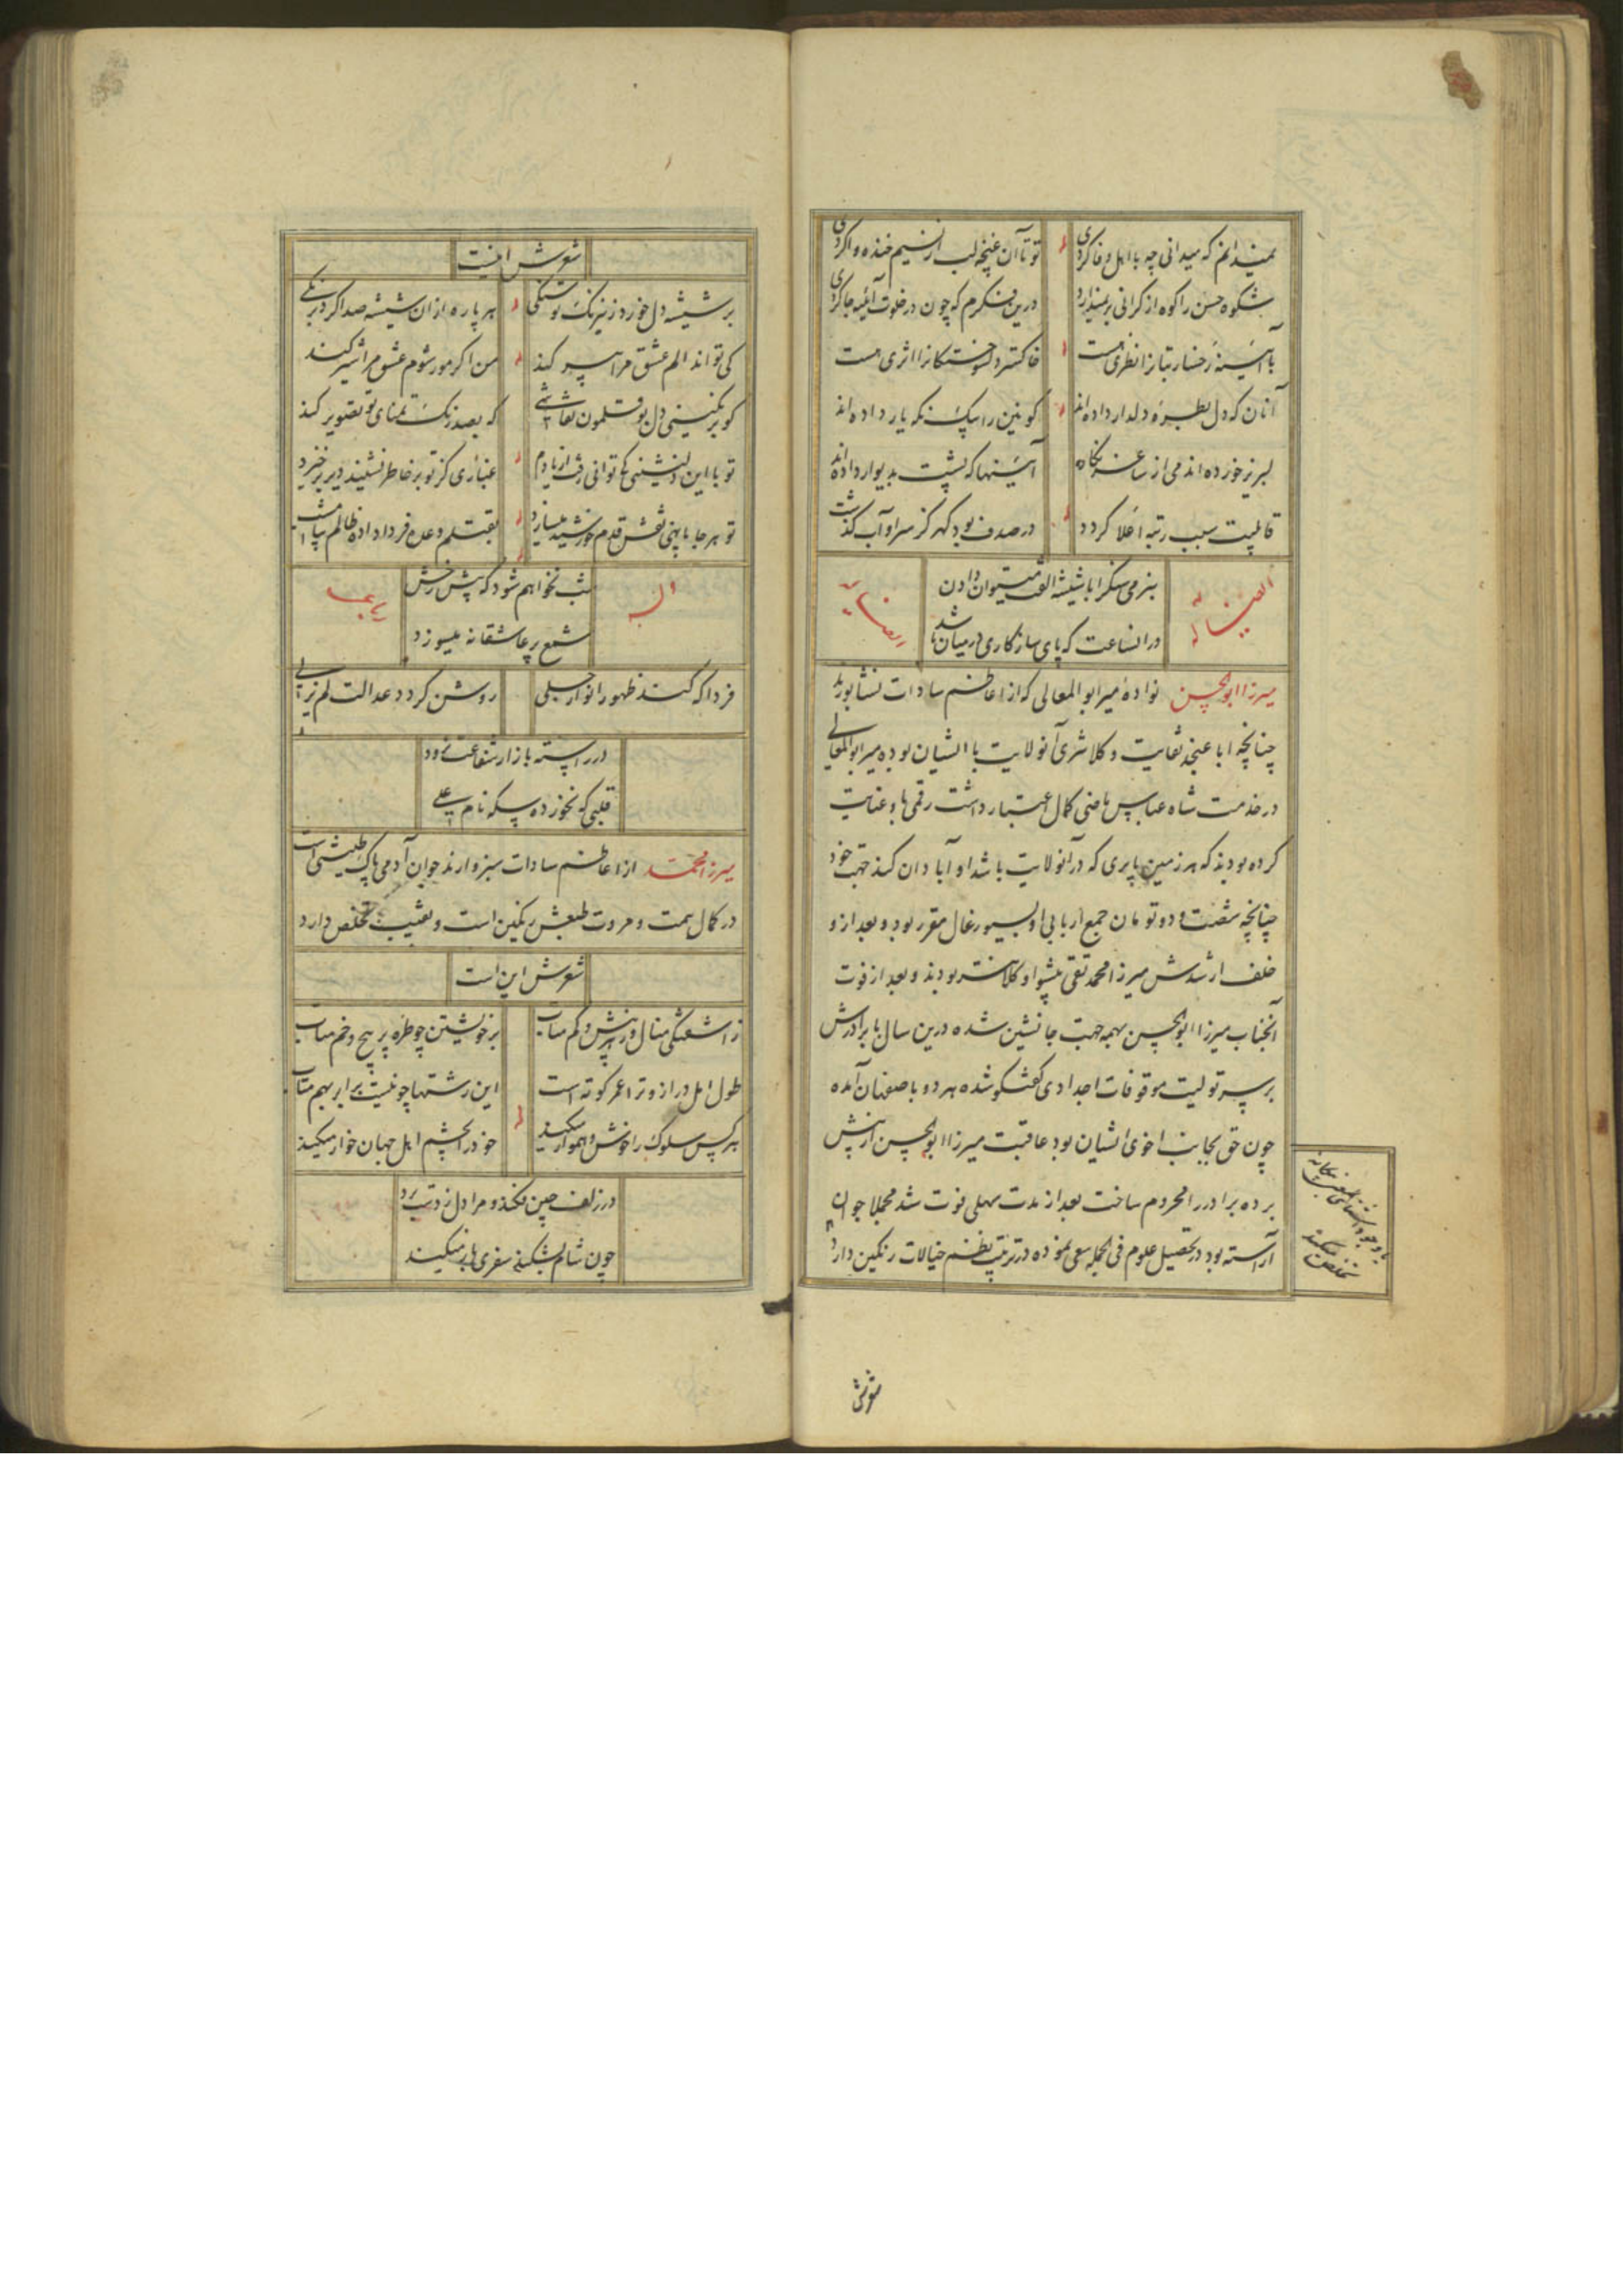 نمیدانم که میدانی چه با اهل وفا کردی تو تا آن غنچه لب را از نسیم خنده وا کردی
شکوه حسن را کوه از کرانی بر نمیدارد درین فکرم که چون در خلوت آئینه جا کردی
با آئینه رخسار بتان را نظری هست خاکستر دلسوختکان را اثری هست
آنان که دل بطره دلدار داده اند کونین را بیک نکه یار داده اند
لبریز خورده اند می از ساغر نکاه آئینها که پشت بدیوار داده اند
قابلیت سبب رتبه اعلا کردد در صدف بود کهر کز سر او آب کذشت
ایضا له
بنرمی سنکرا با شیشه الفت میتوان دادن
در انساعت که پای سازکاری در میان باشد
ایضا له
میرزا ابوالحسن نواده میر ابوالمعالی که از اعاظم سادات نشابورند
چنانچه اباعنجد نقابت و کلانتری آنولایت با ایشان بوده میر ابوالمعالی
در خدمت شاه عباس ماضی کمال اعتبار داشت رقمی باو عنایت
کرده بودند که هر زمین بایری که در آنولایت باشد او آبادان کند جهت خود
چنانچه شصت و دو تومان جمع اربابی او بسیورغال مقرر بود و بعد ازو
خلف ارشدش میرزا محمد تقی پیشوا و کلانتر بودند و بعد از فوت
آنجناب میرزا ابوالحسن بهمه جهت جانشین شده درین سال با برادرش
بر سر تولیت موقوفات اجدادی کفتکو شده هر دو باصفهان آمده
چون حق بجانب اخوی ایشان بود عاقبت میرزا ابوالحسن از پیش
برده برادر را محروم ساخت بعد از مدت سهلی فوت شد مجملا جوان
آراسته بود در تحصیل علوم فی الجمله سعی نموده در ترتیب نظم خیالات رنکین دارد
با وجود آشنائی بیکانه
تخلص میکند
شعرش اینست
بر شیشه دل خورد ز نیرنک تو سنکی هر پاره از ان شیشه صدا کرد برنکی
کی تواند الم عشق مرا سیر کند من اکر مور شوم عشق مرا شیر کند
کو برنکینی دل بوقلمون نقاشی که بصد رنک تمنای تو تصویر کند
تو با این دلنشینی کی توانی رفت از یادم غباری کز تو بر خاطر نشیند دیر برخیزد
تو هر جا پا نهی نقش قدم خورشید میسازد بقتلم وعده فردا داده ظالم
وله
شب نخواهم شود که پیش رخش
شمع پر عاشقانه میسوزد
فردا که کند ظهور انوار جلی روشن کردد عدالت لم یزلی
در راسته بازار شفاعت نرود
قلبی که نخورده سکه نام علی
میرزا محمد از اعاظم سادات سبزوارند جوان آدمی پاک طینتی است
در کمال همت و مروت طبعش رنکین است و تخلص دارد
شعرش این است
ز آشفتکی منال و ز بیش و کم متاب بر خویشتن چو طره پر پیچ و خم متاب
طول امل دراز و ترا عمر کوته است این رشتها چو نیست برابر بهم متاب
هر کس سلوک را خوش و هموار میکند خود را بچشم اهل جهان خوار میکند
در زلف چین فکند و مرا دل ز دست برد
چون شام بشکند سفری بار میکند